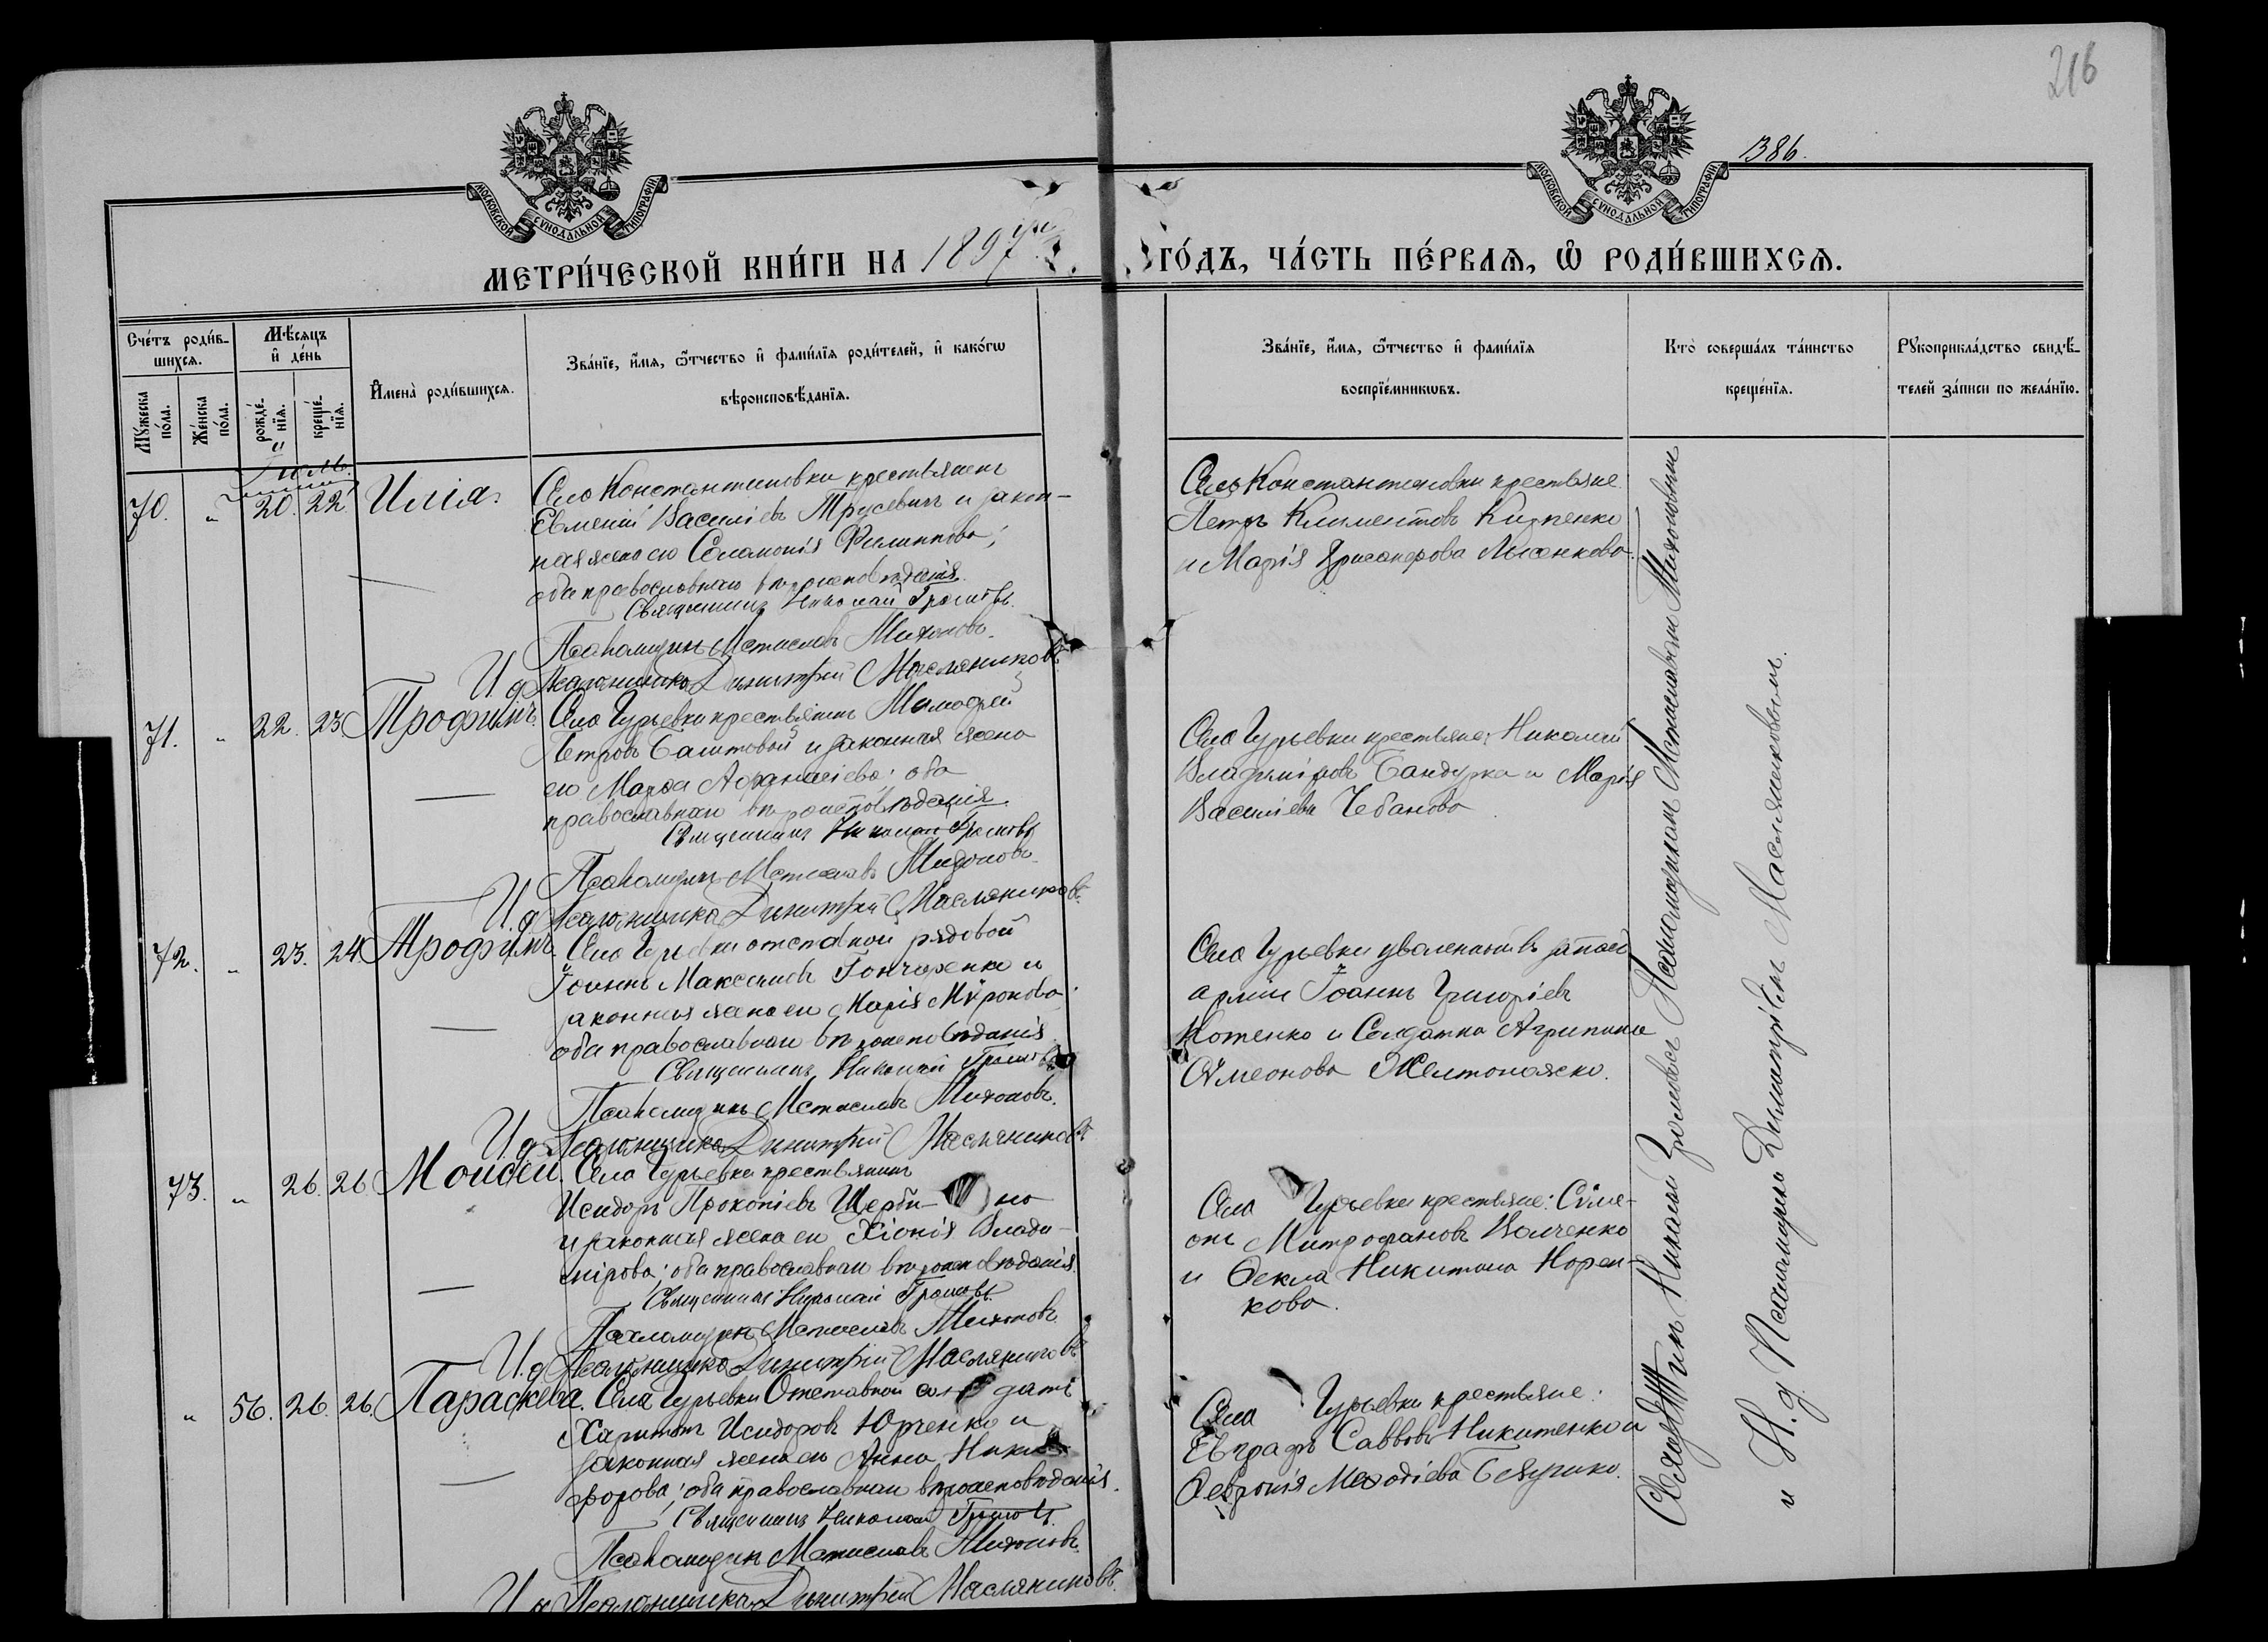 216
1386.
МОСКОВСКОЙ СѴНОДАЛЬНОЙ ТИПОГРАФІИ
МОСКОВСКОЙ СѴНОДАЛЬНОЙ ТИПОГРАФІИ
МЕТРИ́ЧЕСКОЙ КНИ́ГИ НА 1897 ГО́ДЪ, ЧА́СТЬ ПЕ́РВАѦ, Ѽ РОДИ́ВШИХСѦ.
Сче́тъ роди́в-
шихсѧ.
Мѣ́сѧцъ
и҆ де́нь
Мꙋ́жеска
по́ла.
Же́нска
по́ла.
рожде́-
нїѧ.
креще́-
нїѧ.
И҆мена̀ роди́вшихсѧ.
Зва́нїе, и҆́мѧ, ѻ҆́тчество и҆ фами́лїѧ роди́телей, и҆ како́гѡ
вѣроисповѣ́данїѧ.
Зва́нїе, и҆́мѧ, ѻ҆́тчество и҆ фами́лїѧ
воспрїе́мникѡвъ.
Кто̀ соверша́лъ та́инство
креще́нїѧ.
Рꙋкоприкла́дство свидѣ́-
телей за́писи по жела́нїю.
Іюль.
70. " 20. 22. Илія.
Села Константиновки крестьянинъ
Евменій Василіевъ Трусевичъ и закон-
ная жена его Соломонія Филиппова;
оба православнаго вѣроисповѣданія.
Священникъ Николай
Псаломщикъ Мстиславъ Михоновъ.
И. д. Псаломщика Димитрій Масляниковъ
Села Константиновки крестьяне
Петръ Климентовъ Кирпенко
и Марія Лысенкова.
71. " 22. 23. Трофимъ.
Села Гурьевки крестьянинъ Тимофей
Петровъ Баштовой и законная жена
его Марфа Афанасіева; оба
православнаго вѣроисповѣданія.
Священникъ Николай
Псаломщикъ Мстиславъ Михоновъ.
И. д. Псаломщика Димитрій Масляниковъ.
Села Гурьевки крестьяне: Николай
Владиміровъ Бандурка и Марія
Василіева Чебанова
72. " 23. 24. Трофимъ.
Села Гурьевки отставной рядовой
Іоаннъ Максимовъ Гончаренко и
законная жена его Марія Мѵронова
оба православнаго вѣроисповѣданія
Священникъ Николай
Псаломщикъ Мстиславъ Михоновъ.
И. д. Псаломщика Димитрій Масляниковъ
Села Гурьевки уволенный въ запасъ
арміи Іоаннъ Григоріевъ
Котенко и Солдатка Агрипина
Сѵмеонова Желтоножко.
73. " 26. 26. Моисей.
Села Гурьевки крестьянинъ
Исидоръ Прокопіевъ Щерби- но
и законная жена его Хіонія Влади-
мірова; оба православнаго вѣроисповѣданія.
Священникъ Николай
Псаломщикъ Мстиславъ Михоновъ.
И. д. Псаломщика Димитрій Масляниковъ
Села Гурьевки крестьяне: Сѵме-
онъ Митрофановъ Волченко
и Ѳекла Никитина Норен-
кова.
" 56. 26. 26. Параскева.
Села Гурьевки Отставной сол датъ
Харитонъ Исидоровъ Юрченко и
законная жена его Анна Ники-
форова; оба православнаго вѣроисповѣданія.
Священникъ Николай
Псаломщикъ Мстиславъ Михоновъ.
И. д. Псаломщика Димитрій Масляниковъ.
Села Гурьевки крестьяне:
Евграфъ Саввовъ Никитенко и
Ѳевронія Меѳодіева
Священникъ Николай съ Псаломщикомъ Мстиславомъ Михоновымъ
и И. д. Псаломщика Димитріемъ Масляниковымъ.